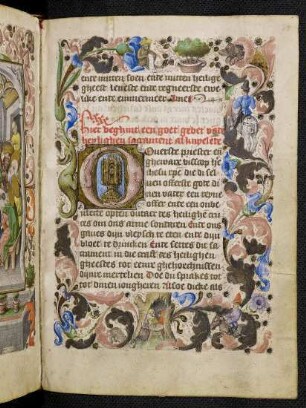 ende mitten soen ende mitten heilighe
gheest levefte ende regneerste ewe
like ende ummermeer Amen
Hier beghint een goet gebet vande
heylighen sacrament
Overste priester en
gheware bisscop
hesu criste die di sel
ven offerste gode di
nen vader een reyne
offer ende een onbe
vlecte opten outaer des heilighe cru
ces om ons arme sondaren Ende ons
ghaves dijn vleysch te eten ende dijn
bloet te drincken Ende settes dit sa
crament in die craft des heilighen
gheestes tot eenre ghehoechnissen
dijnre mertelien Doe du spraekes tot
dinen iongheren Alsoe dicke als